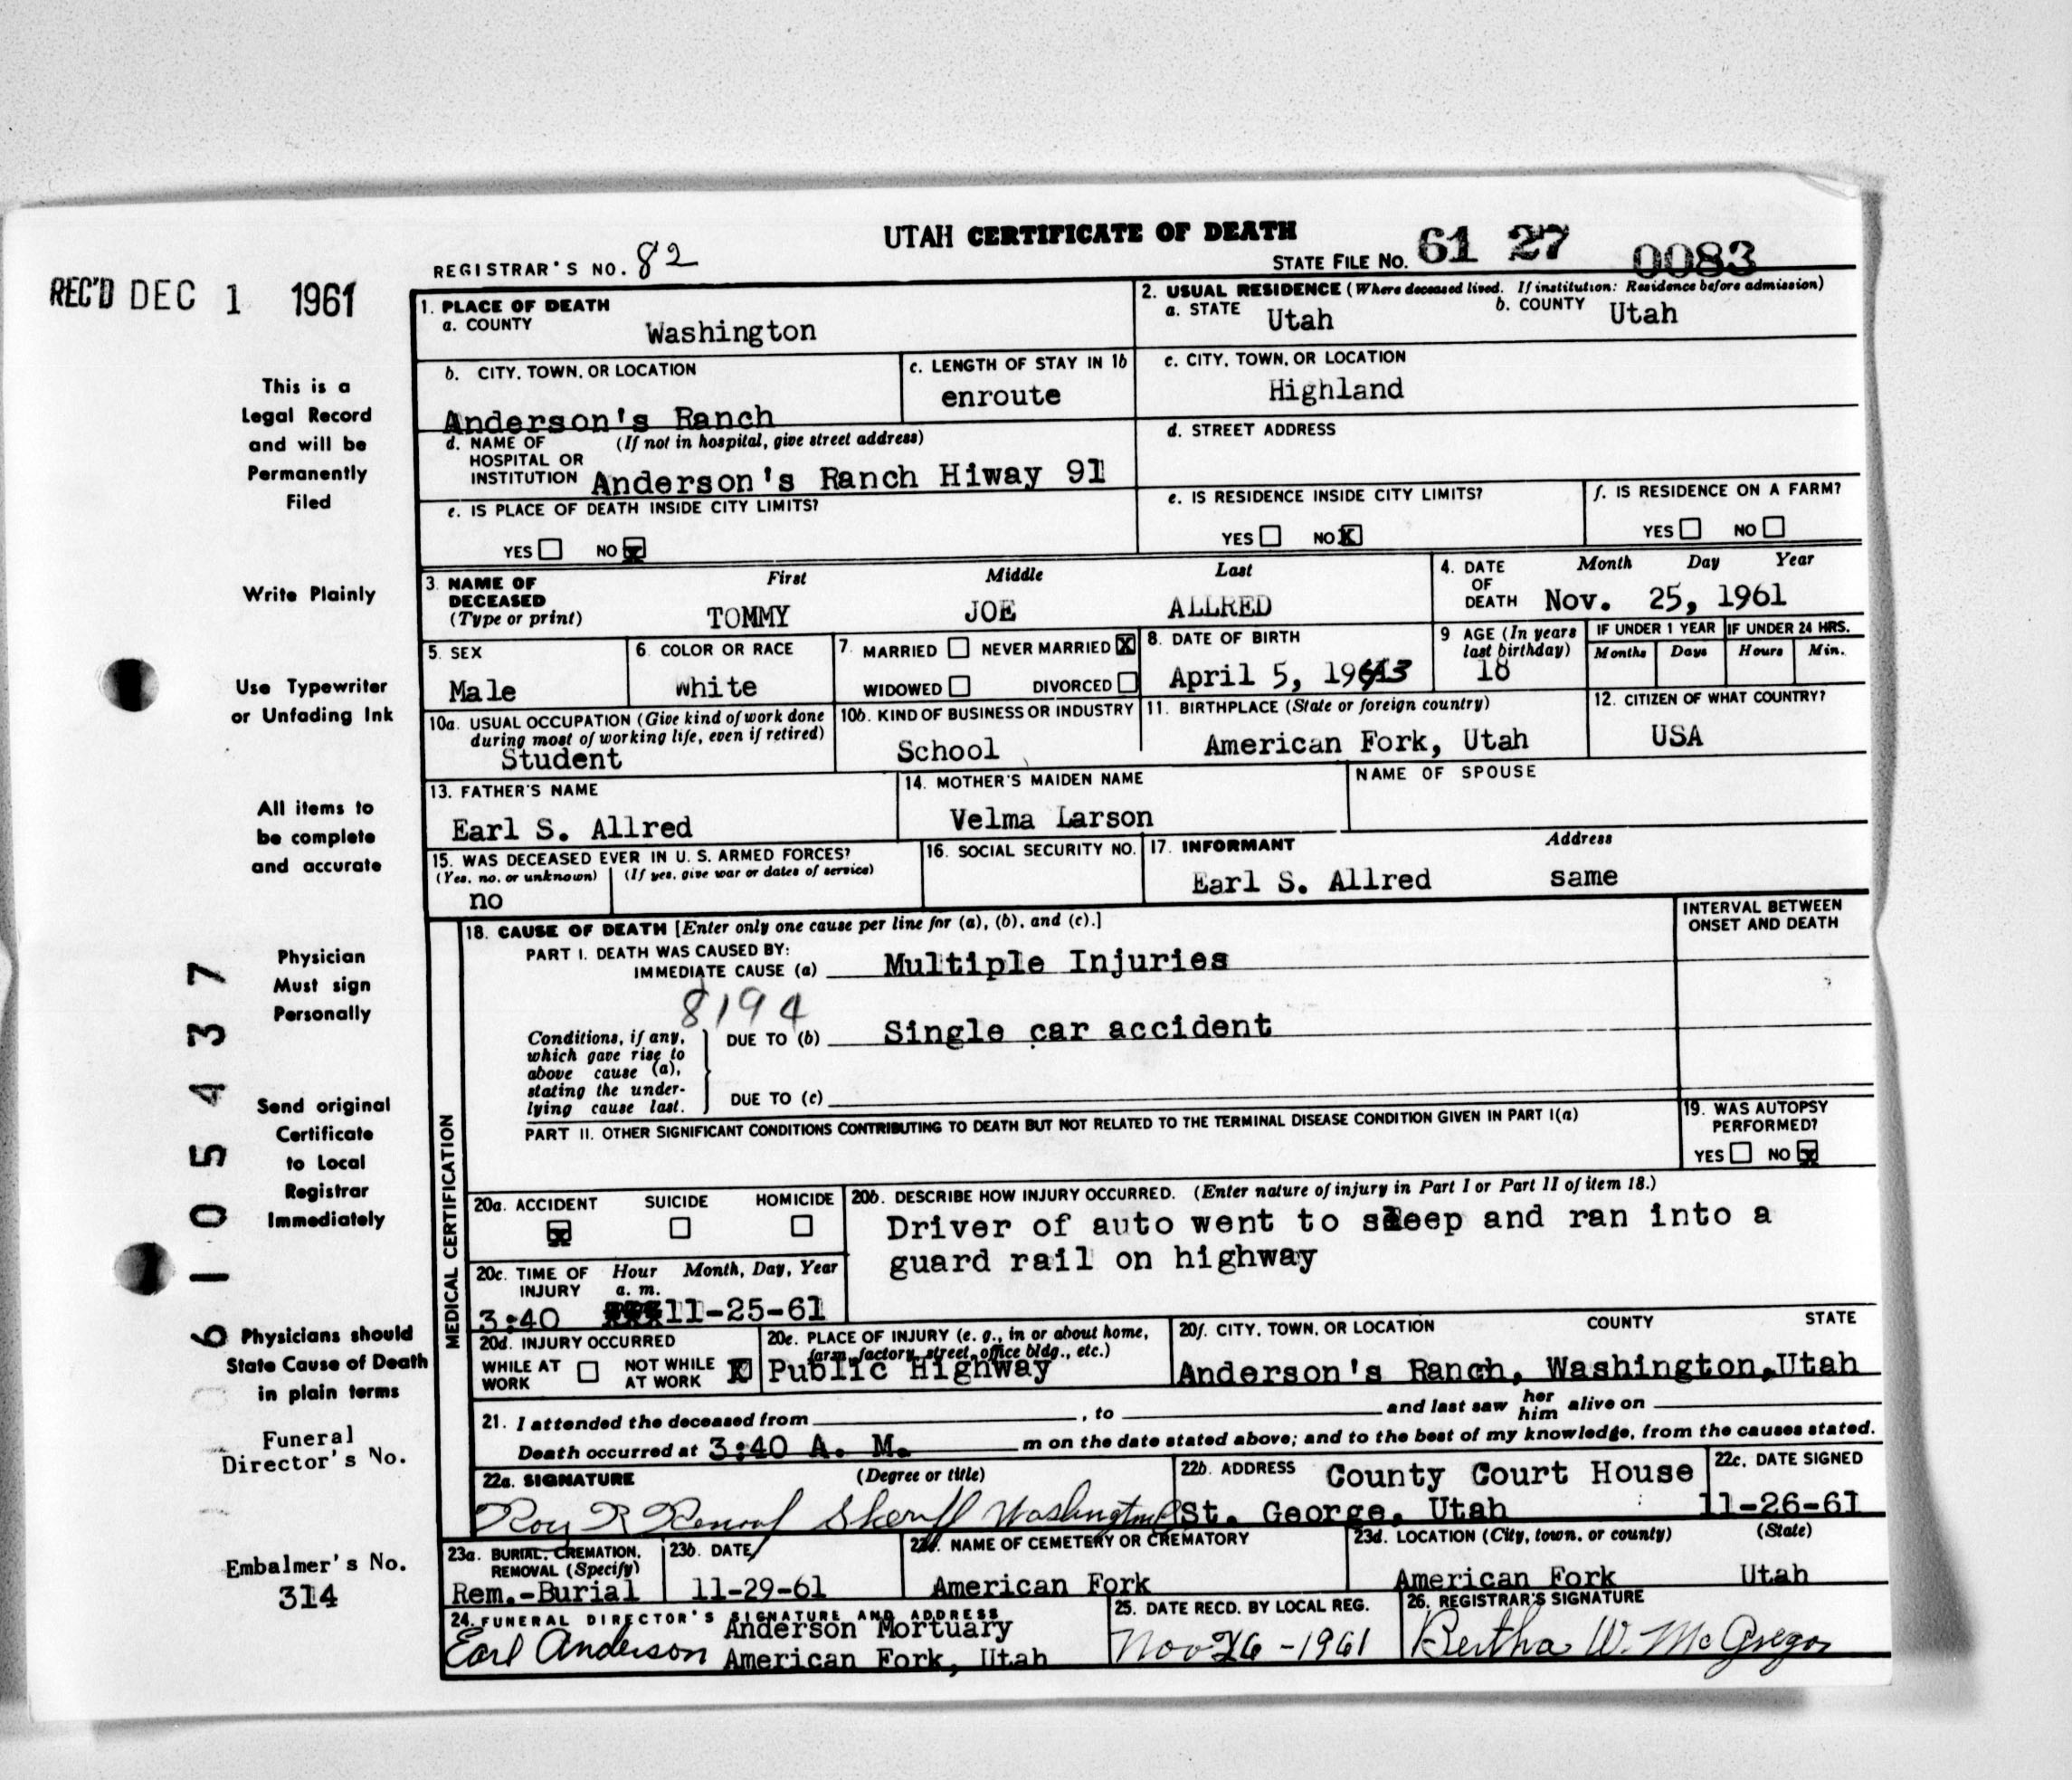 UTAH CERTIFICATE OF DEATH
REGISTRAR'S NO. 82
STATE FILE NO. 61 27 0083
REC'D DEC 1 1961
This is a
Legal Record
and will be
Permanently
Filed
Write Plainly
Use Typewriter
or Unfading Ink
All items to
be complete
and accurate
Physician
Must sign
Personally
Send original
Certificate
to Local
Registrar
Immediately
Physicians should
State Cause of Death
in plain terms
Funeral
Director's No.
Embalmer's No.
314
61 05437
1. PLACE OF DEATH
a. COUNTY Washington
2. USUAL RESIDENCE (Where deceased lived. If institution: Residence before admission)
a. STATE Utah b. COUNTY Utah
b. CITY, TOWN, OR LOCATION
Anderson's Ranch
c. LENGTH OF STAY IN 1b
enroute
c. CITY, TOWN, OR LOCATION
Highland
d. NAME OF (If not in hospital, give street address)
HOSPITAL OR
INSTITUTION Anderson's Ranch Hiway 91
d. STREET ADDRESS
e. IS PLACE OF DEATH INSIDE CITY LIMITS?
YES NO X
e. IS RESIDENCE INSIDE CITY LIMITS?
YES NO X
f. IS RESIDENCE ON A FARM?
YES NO
3. NAME OF
DECEASED
(Type or print)
First Middle Last
TOMMY JOE ALLRED
4. DATE
OF
DEATH
Month Day Year
Nov. 25, 1961
5. SEX
Male
6. COLOR OR RACE
White
7. MARRIED NEVER MARRIED X
WIDOWED DIVORCED
8. DATE OF BIRTH
April 5, 1943
9 AGE (In years
last birthday)
18
IF UNDER 1 YEAR
Months Days
IF UNDER 24 HRS.
Hours Min.
10a. USUAL OCCUPATION (Give kind of work done
during most of working life, even if retired)
Student
10b. KIND OF BUSINESS OR INDUSTRY
School
11. BIRTHPLACE (State or foreign country)
American Fork, Utah
12. CITIZEN OF WHAT COUNTRY?
USA
13. FATHER'S NAME
Earl S. Allred
14. MOTHER'S MAIDEN NAME
Velma Larson
NAME OF SPOUSE
15. WAS DECEASED EVER IN U. S. ARMED FORCES?
(Yes, no, or unknown) (If yes, give war or dates of service)
no
16. SOCIAL SECURITY NO.
17. INFORMANT Address
Earl S. Allred same
MEDICAL CERTIFICATION
18. CAUSE OF DEATH [Enter only one cause per line for (a), (b), and (c).]
INTERVAL BETWEEN
ONSET AND DEATH
PART I. DEATH WAS CAUSED BY:
IMMEDIATE CAUSE (a) Multiple Injuries
8194
Conditions, if any,
which gave rise to
above cause (a),
stating the under-
lying cause last.
DUE TO (b) Single car accident
DUE TO (c)
PART II. OTHER SIGNIFICANT CONDITIONS CONTRIBUTING TO DEATH BUT NOT RELATED TO THE TERMINAL DISEASE CONDITION GIVEN IN PART I(a)
19. WAS AUTOPSY
PERFORMED?
YES NO X
20a. ACCIDENT SUICIDE HOMICIDE
X
20b. DESCRIBE HOW INJURY OCCURRED. (Enter nature of injury in Part I or Part II of item 18.)
Driver of auto went to sleep and ran into a
guard rail on highway
20c. TIME OF Hour Month, Day, Year
INJURY a. m.
3:40 11-25-61
20d. INJURY OCCURRED
WHILE AT
WORK
NOT WHILE
AT WORK X
20e. PLACE OF INJURY (e. g., in or about home,
farm, factory, street, office bldg., etc.)
Public Highway
20f. CITY, TOWN, OR LOCATION COUNTY STATE
Anderson's Ranch, Washington, Utah
21. I attended the deceased from , to and last saw her him alive on
Death occurred at 3:40 A. M. m on the date stated above; and to the best of my knowledge, from the causes stated.
22a. SIGNATURE (Degree or title)
Roy R Renouf Sheriff Washington
22b. ADDRESS County Court House
St. George, Utah
22c. DATE SIGNED
11-26-61
23a. BURIAL, CREMATION,
REMOVAL (Specify)
Rem.-Burial
23b. DATE
11-29-61
NAME OF CEMETERY OR CREMATORY
American Fork
23d. LOCATION (City, town, or county) (State)
American Fork Utah
24. FUNERAL DIRECTOR'S SIGNATURE AND ADDRESS
Earl Anderson
Anderson Mortuary
American Fork, Utah
25. DATE RECD. BY LOCAL REG.
Nov 26-1961
26. REGISTRAR'S SIGNATURE
Bertha W. McGregor